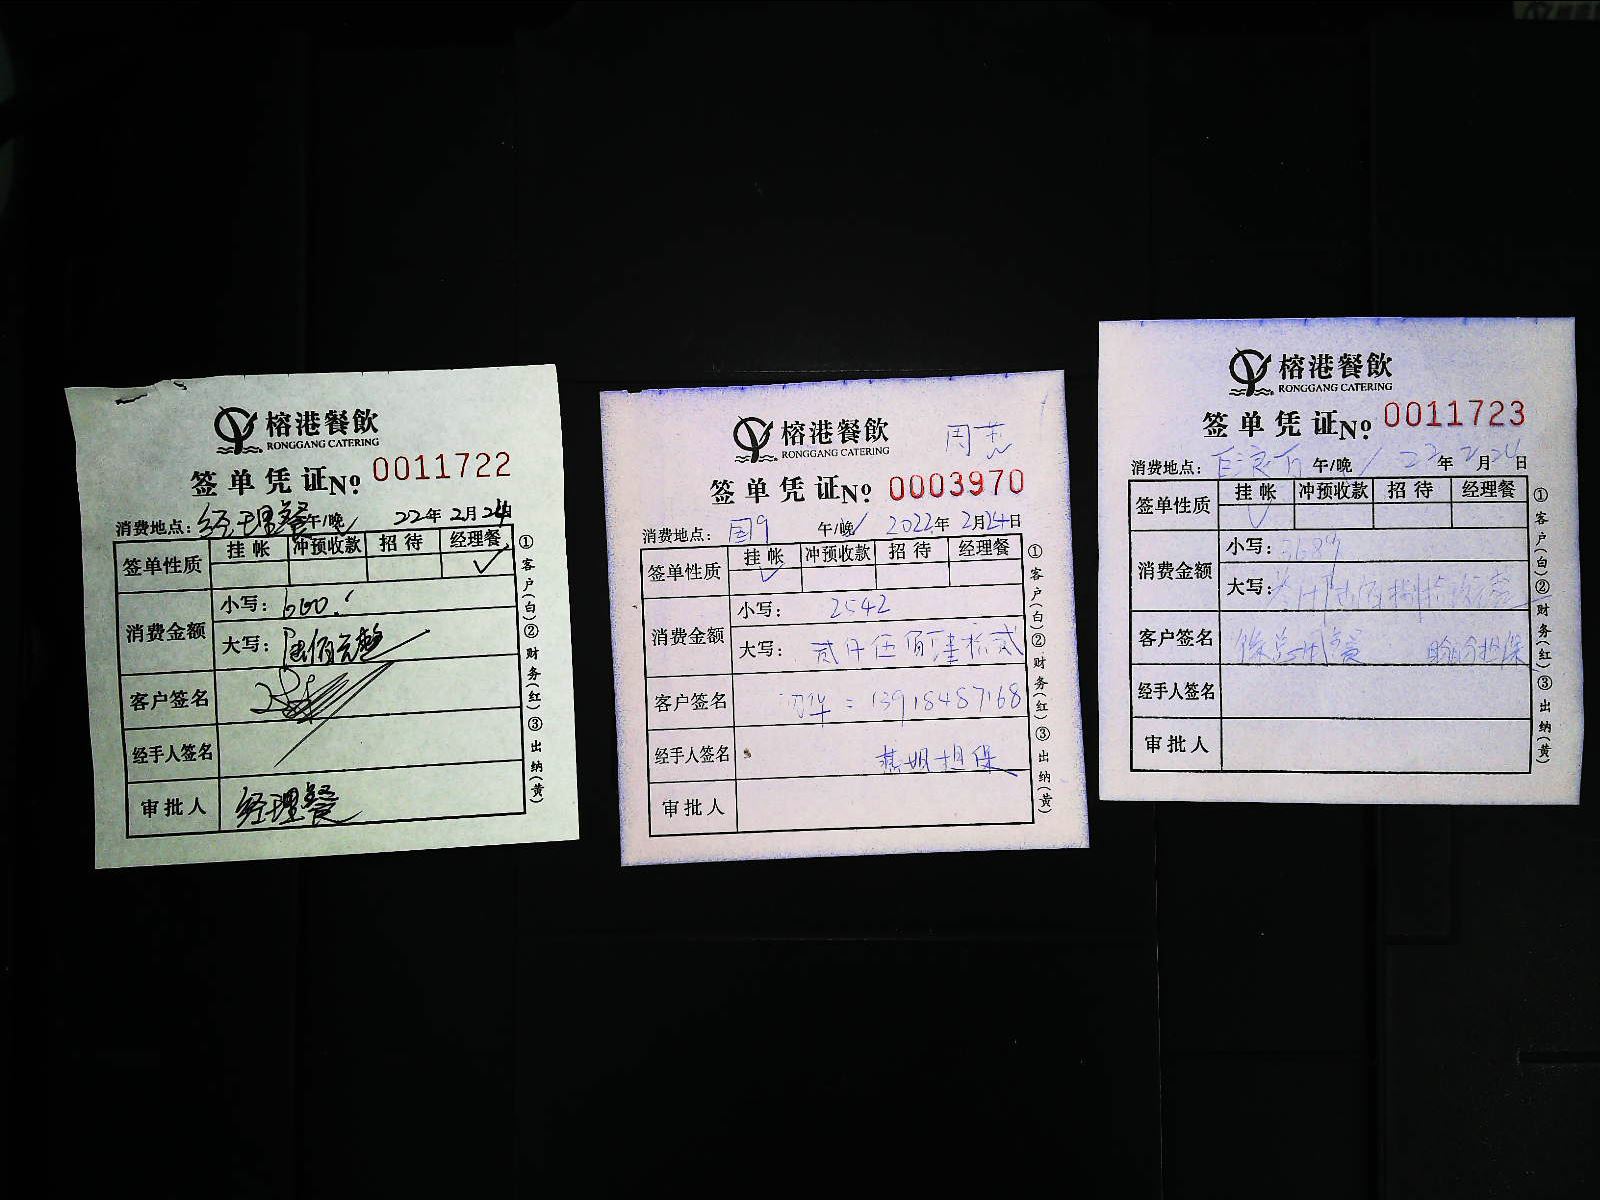 榕港餐飲
RONGGANG CATERING
签单凭证No. 0011722
消费地点：经理餐 午/晚 22年2月24日
签单性质 挂帐 冲预收款 招待 经理餐 ✓
消费金额 小写：600.
大写：陆佰元整
客户签名
经手人签名
审批人 经理餐
①客户(白)②财务(红)③出纳(黄)
榕港餐飲
RONGGANG CATERING
签单凭证No. 0003970
消费地点： 午/晚 2022年2月24日
签单性质 挂帐 ✓ 冲预收款 招待 经理餐
消费金额 小写：2542
大写：贰仟伍佰肆拾贰
客户签名 ：13918487168
经手人签名 燕姐担保
审批人
①客户(白)②财务(红)③出纳(黄)
榕港餐飲
RONGGANG CATERING
签单凭证No. 0011723
消费地点： 午/晚 22年2月24日
签单性质 挂帐 ✓ 冲预收款 招待 经理餐
消费金额 小写：
大写：
客户签名 担保
经手人签名
审批人
①客户(白)②财务(红)③出纳(黄)